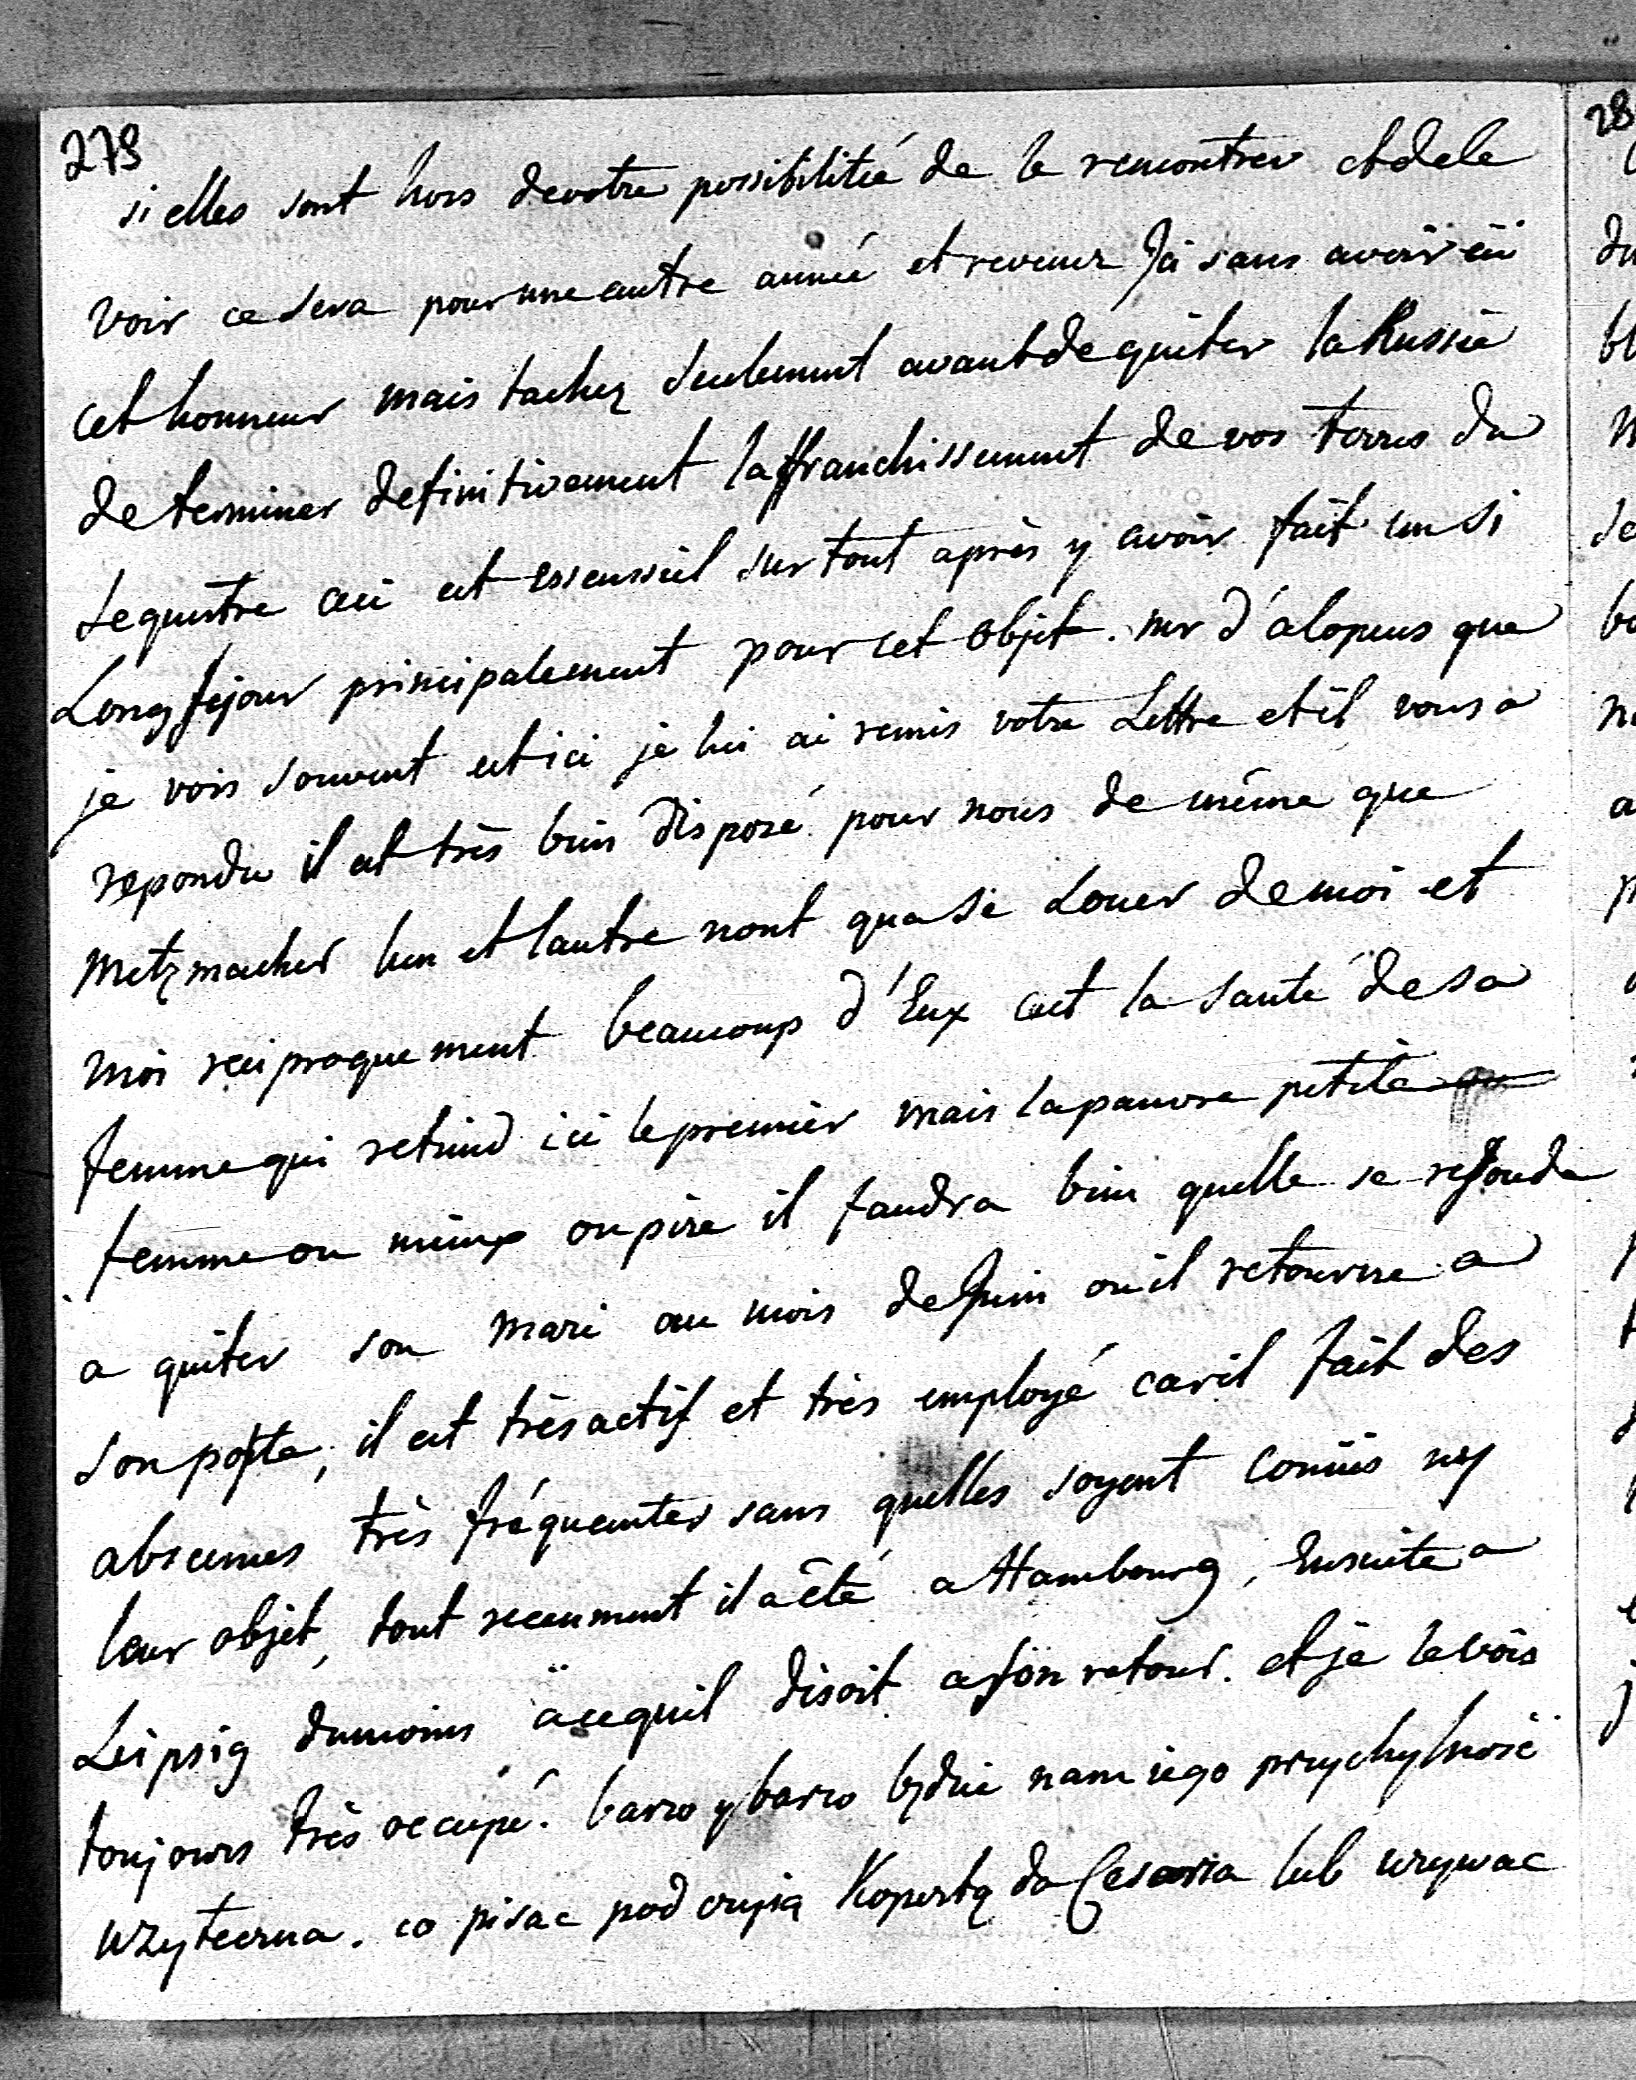 278
si elles sont hors devotre possibilitié de le remontrer et dele
voir ce sera pour une autre année et revenez Ici sans avoir eü
cet honneur mais tachez seulement avant de quiter la Russie
de terminer definitivement laffranchissement de vos terres du
sequestre ceci est essensiel sur tout après y avoir fait un si
Long séjour principalement pour cet objet. mr d'alopeus que
je vois souvent est ici je lui ai remis votre Lettre et il vous a
repondu il est très bien disposé pour nous de même que
Metzmacher lun et lautre nont qua se Louer de moi et
moi reciproquement beaucoup d'Eux cest la santé de sa
femme qui retiend ici le premier mais la pauvre petite
femme ou mieux ou pire il faudra bien quelle se resoude
a quiter son mari au mois de Juin ou il retourne a
son poste, il est très actif et très employé car il fait des
absences très fréquentes sans quelles soyent conües ny
leur objet, tout recenment il a été a Hambourg, Ensuite a
Leipsig dumoins a ce quil disoit a son retour. et je le vois
toujours très occupé. barzo y barzo bydzie nam iego przychylność
uzyteczna. co pisac pod czyją Kopertą do Cesarza lub uzywac